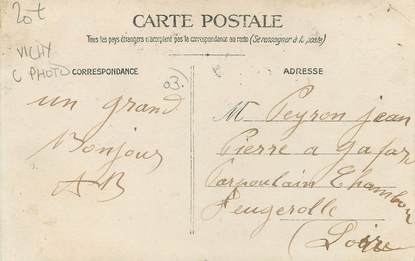 20t
VICHY
C PHOTO
CARTE POSTALE
Tous les pays étrangers n'acceptent pas la correspondance au recto (Se renseigner à la poste)
CORRESPONDANCE
03.
ADRESSE
un grand
Bonjour
AB
M Peyron jean
Pierre a Gafar
Parpoulain Chambon
Feugerolle
(Loire